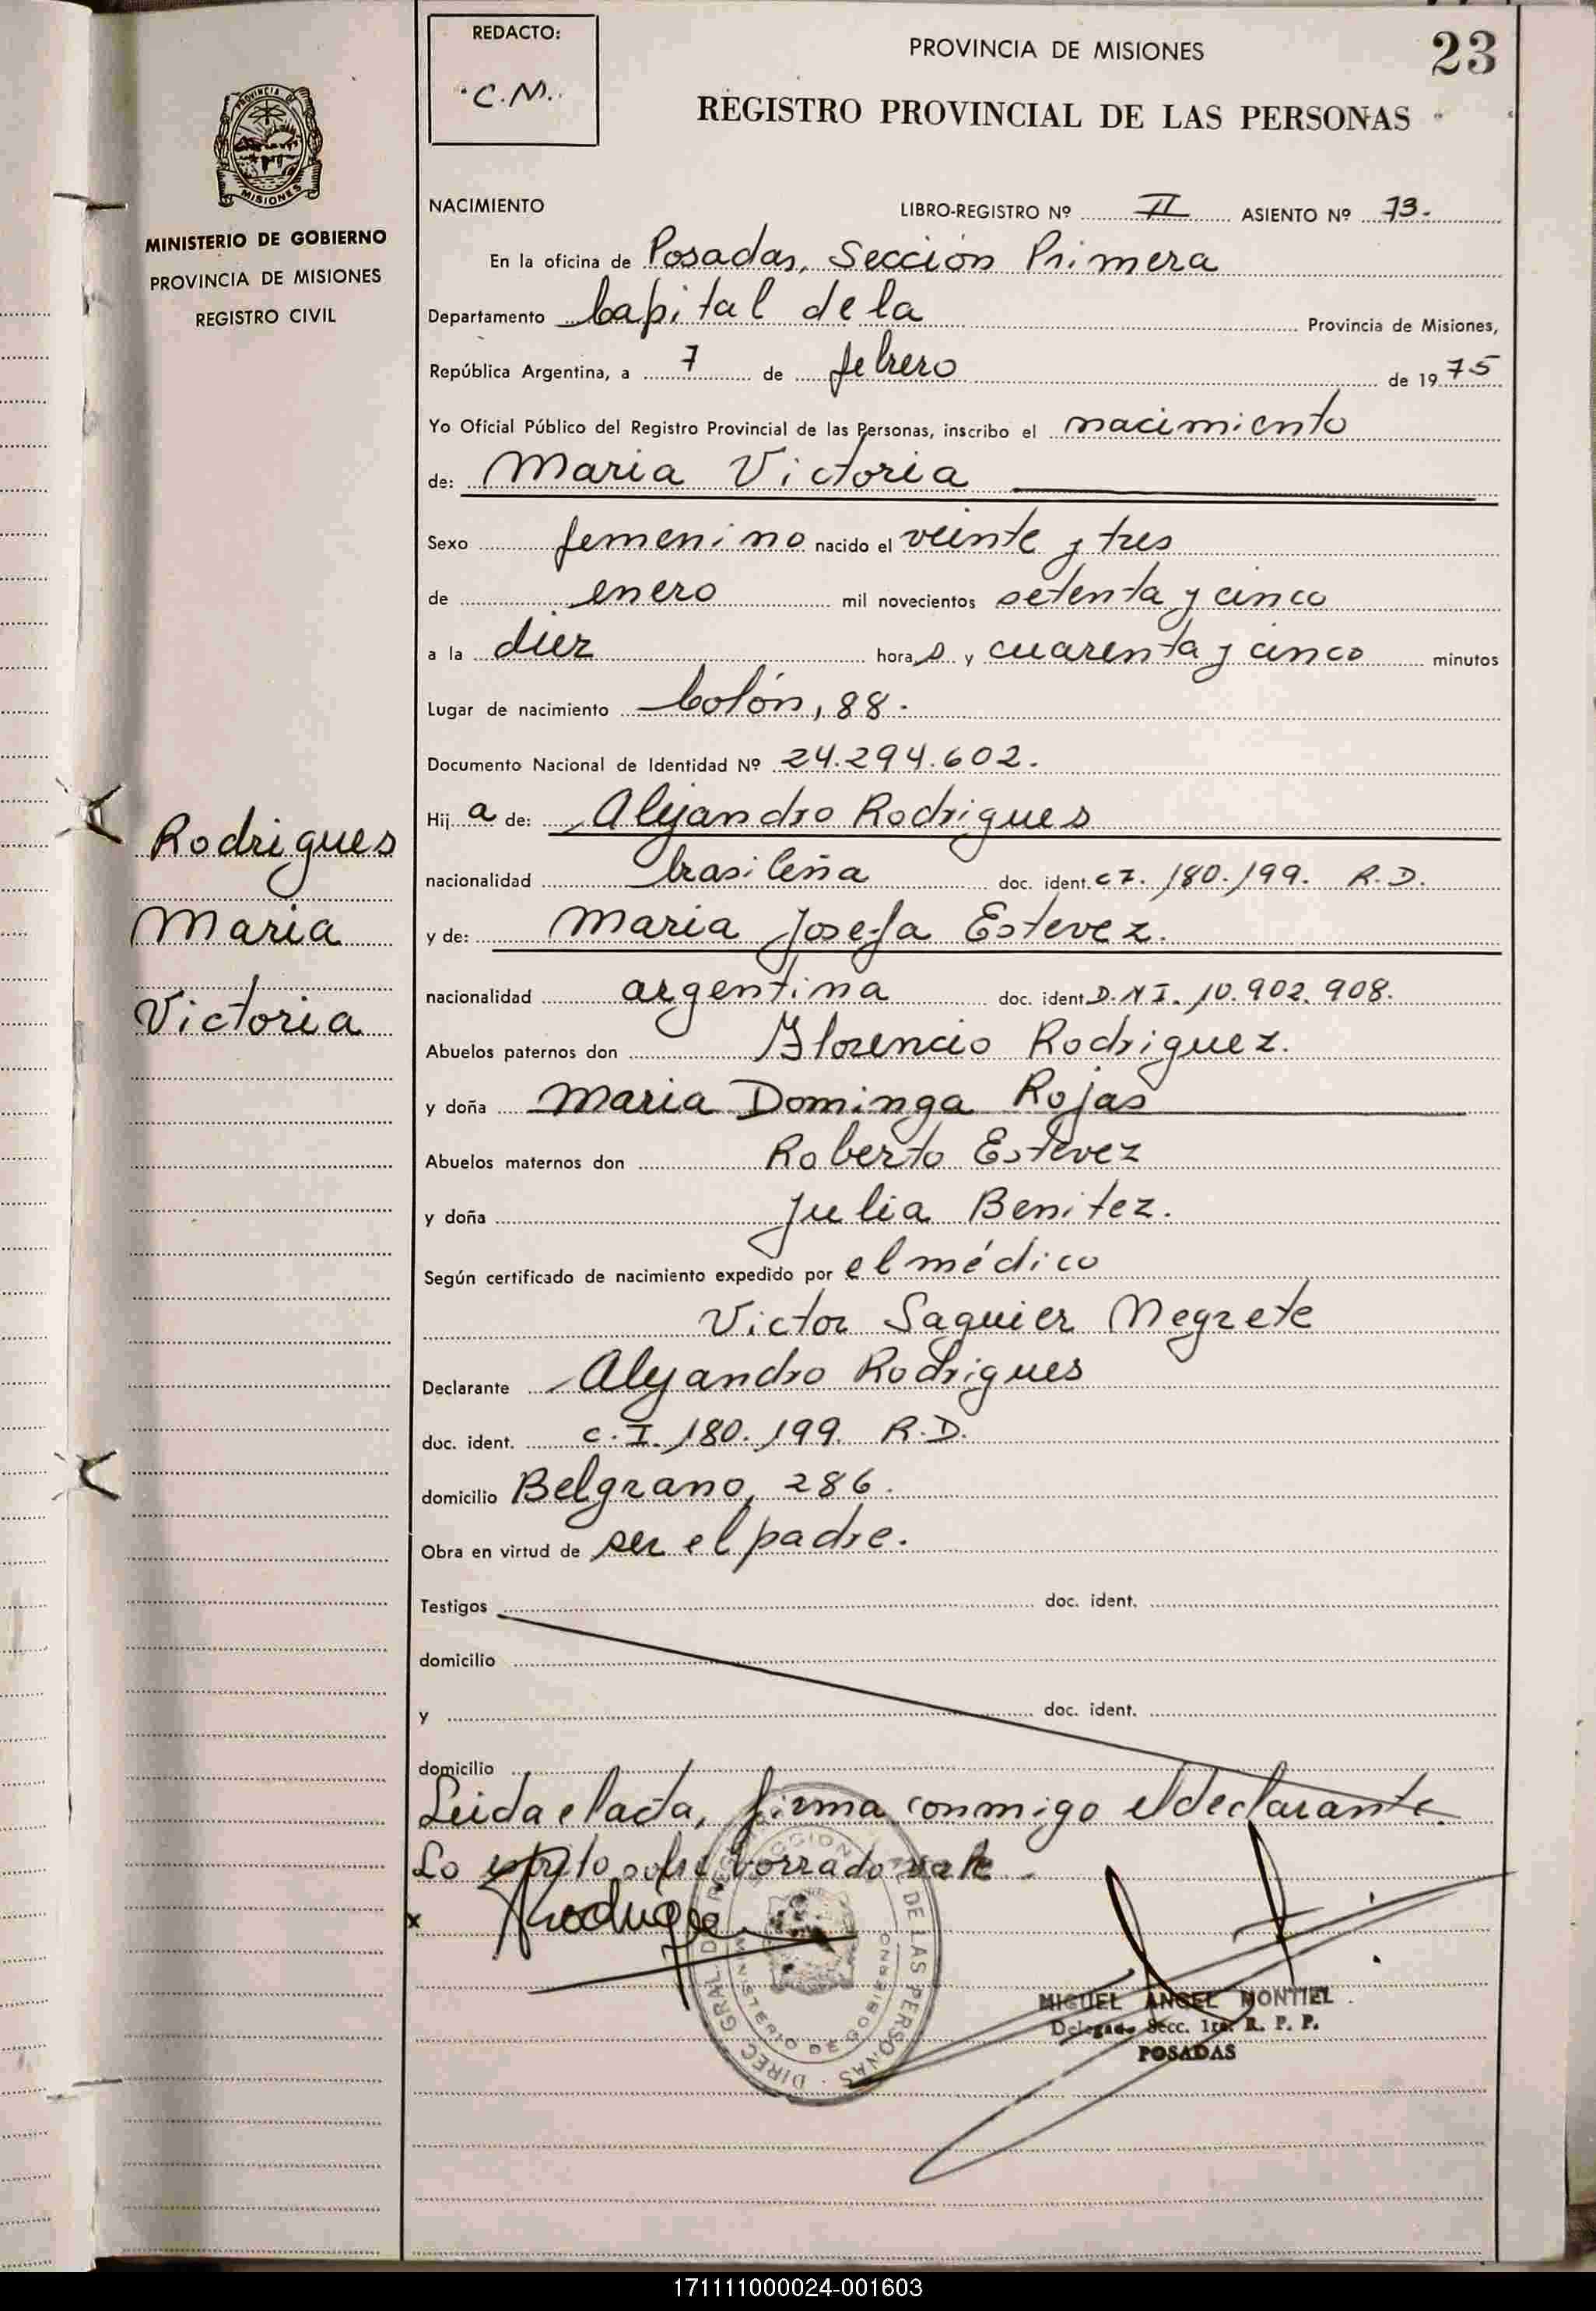 REDACTO:
C.M.
PROVINCIA DE MISIONES
23
REGISTRO PROVINCIAL DE LAS PERSONAS
PROVINCIA DE
MISIONES
MINISTERIO DE GOBIERNO
PROVINCIA DE MISIONES
REGISTRO CIVIL
NACIMIENTO LIBRO-REGISTRO Nº II ASIENTO Nº 73.
En la oficina de Posadas, Sección Primera
Departamento Capital de la Provincia de Misiones,
República Argentina, a 7 de febrero de 1975
Yo Oficial Público del Registro Provincial de las Personas, inscribo el nacimiento
de: Maria Victoria
Sexo femenino nacido el veinte y tres
de enero mil novecientos setenta y cinco
a la diez horas y cuarenta y cinco minutos
Lugar de nacimiento Colón, 88.
Documento Nacional de Identidad Nº 24.294.602.
Hija de: Alejandro Rodrigues
nacionalidad brasileña doc. ident. C.I. 180.199. R.D.
y de: Maria Josefa Estevez.
nacionalidad argentina doc. ident. D.N.I. 10.902.908.
Abuelos paternos don Florencio Rodriguez.
y doña Maria Dominga Rojas
Abuelos maternos don Roberto Estevez
y doña Julia Benitez.
Según certificado de nacimiento expedido por el médico
Victor Saguier Negrete
Declarante Alejandro Rodrigues
doc. ident. C.I. 180.199. R.D.
domicilio Belgrano, 286.
Obra en virtud de ser el padre.
Testigos doc. ident.
domicilio
y doc. ident.
domicilio
Leida el acta, firma conmigo el declarante.
Lo escrito sobre borrado vale.
Rodrigues
Maria
Victoria
x
DIREC. GRAL. DE LAS PERSONAS
MINISTERIO DE GOBIERNO
MIGUEL ANGEL MONTIEL
Delegado Secc. 1ra. R. P. P.
POSADAS
171111000024-001603